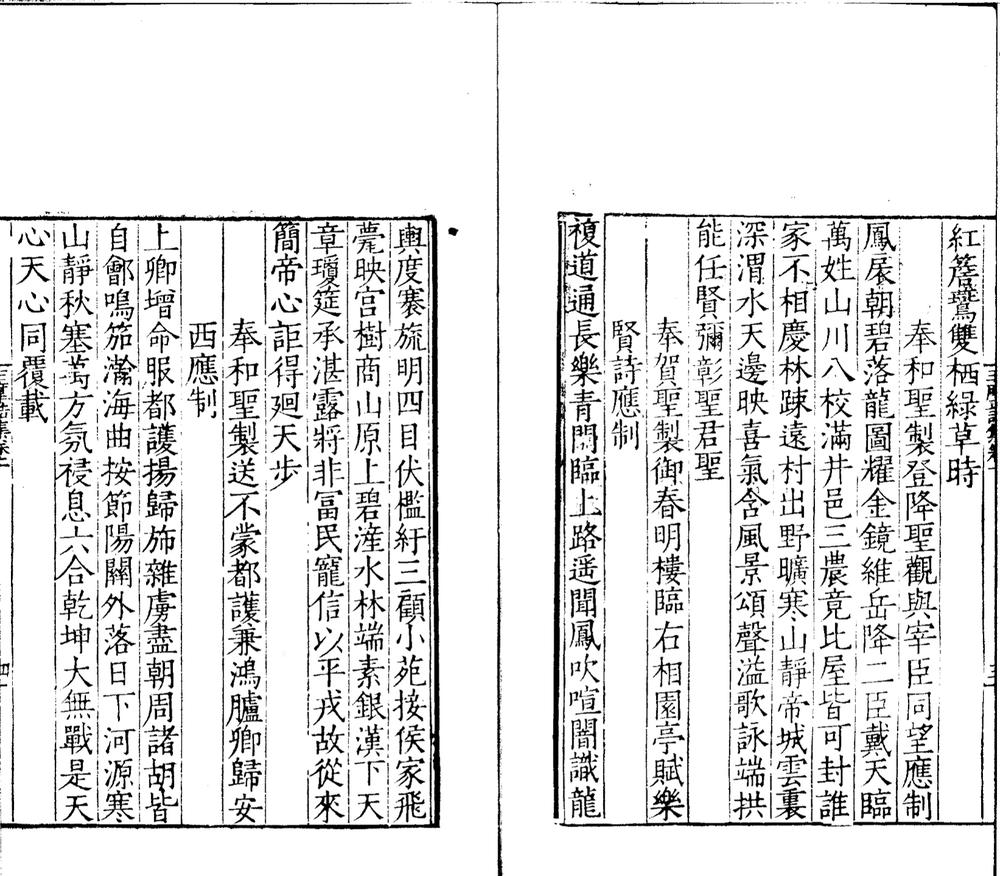 紅簷鷩雙栖緑草時
奉和聖製登降聖觀與宰臣同望應制
鳳扆朝碧落龍圖耀金鏡維岳降二臣戴天臨
萬姓山川八校滿井邑三農竟比屋皆可封誰
家不相慶林踈遠村出野曠寒山靜帝城雲裏
深渭水天邊映喜氣含風景頌聲溢歌詠端拱
能任賢彌彰聖君聖
奉賀聖製御春明樓臨右相園亭賦樂
賢詩應制
複道通長樂青門臨上路遥聞鳳吹喧闇識龍
輿度褰旒明四目伏檻紆三顧小苑接侯家飛
甍映宫樹商山原上碧滻水林端素銀漢下天
章瓊筵承湛露將非冨民寵信以平戎故從來
簡帝心詎得廻天步
奉和聖製送不蒙都護兼鴻臚卿歸安
西應制
上卿增命服都護揚歸斾雜虜盡朝周諸胡皆
自鄶鳴笳瀚海曲按節陽關外落日下河源寒
山靜秋塞萬方氛祲息六合乾坤大無戰是天
心天心同覆載